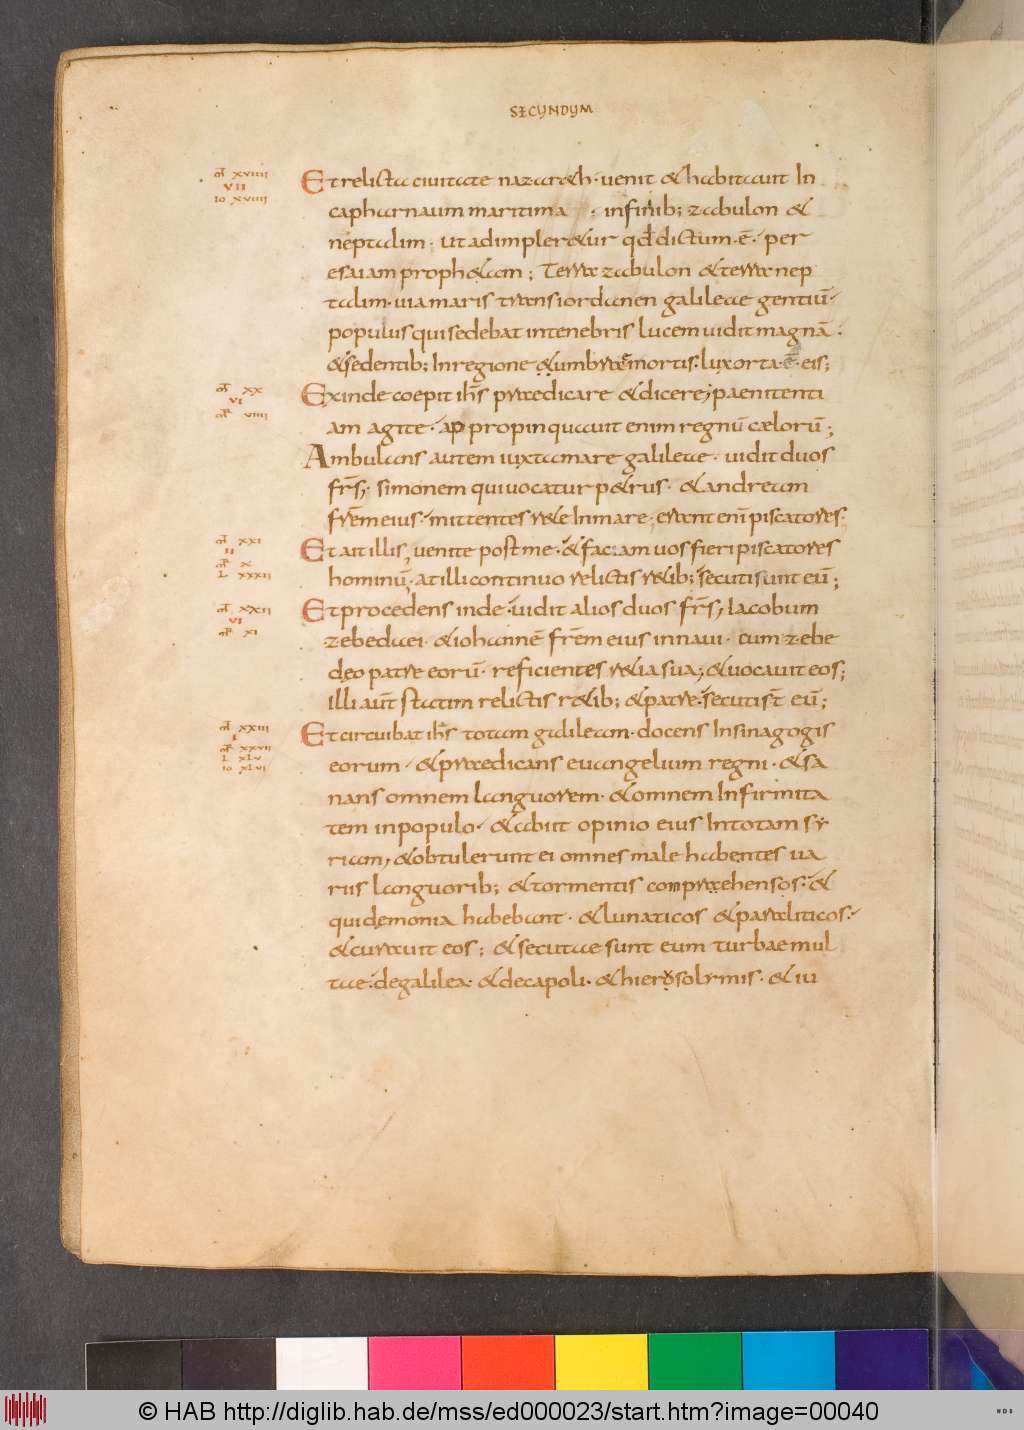 SECUNDUM
mt xviiii
VII
io xviiii
Et relicta civitate nazareth · venit & habitavit In
capharnaum maritima · infinib; zabulon &
neptalim · ut adimpler&ur qđ dictum · ē · per
esaiam proph&am ; Terra zabulon & terra nep
talim · via maris trans iordanen galileae gentiū ·
populus qui sedebat in tenebris lucem vidit magnā ·
& sedentib; In regione & umbrae mortis · lux orta · ē · eis ;
mt xx
VI
mr viiii
Exinde coepit ihs praedicare & dicere ; paenitenti
am agite · appropinquavit enim regnū cælorū ;
Ambulans autem iuxta mare galileae · vidit duos
frs ; simonem qui vocatur p&rus · & andream
frem eius · mittentes r&e In mare ; erant eni piscatores ·
mt xxi
II
mr x
L xxxii
Et ait illis , venite post me · & faciam vos fieri piscatores
hominū ; at illi continuo relictis r&ib; secuti sunt eū ;
mt xxii
VI
mr xi
Et procedens inde · vidit alios duos frs ; Iacobum
zebedaei · & iohannē frem eius in navi · cum zebe
deo patre eorū · reficientes r&ia sua ; & vocavit eos ;
Illi aut statim relictis r&ib; & patre · secuti st eū ;
mt xxiii
I
mr xxvii
L xlv
io xlvi
Et circuibat ihs totam galileam · docens In sinagogis
eorum · & praedicans evangelium regni · & sa
nans omnem languorem · & omnem Infirmita
tem in populo · & abiit opinio eius In totam sy
riam , & obtulerunt ei omnes male habentes va
riis languorib; & tormentis comprehensos · &
qui demonia habebant · & lunaticos & paraliticos ·
& curavit eos ; & secutae sunt eum turbae mul
tae · de galilea · & decapoli · & hierosolymis · & iu
© HAB http://diglib.hab.de/mss/ed000023/start.htm?image=00040